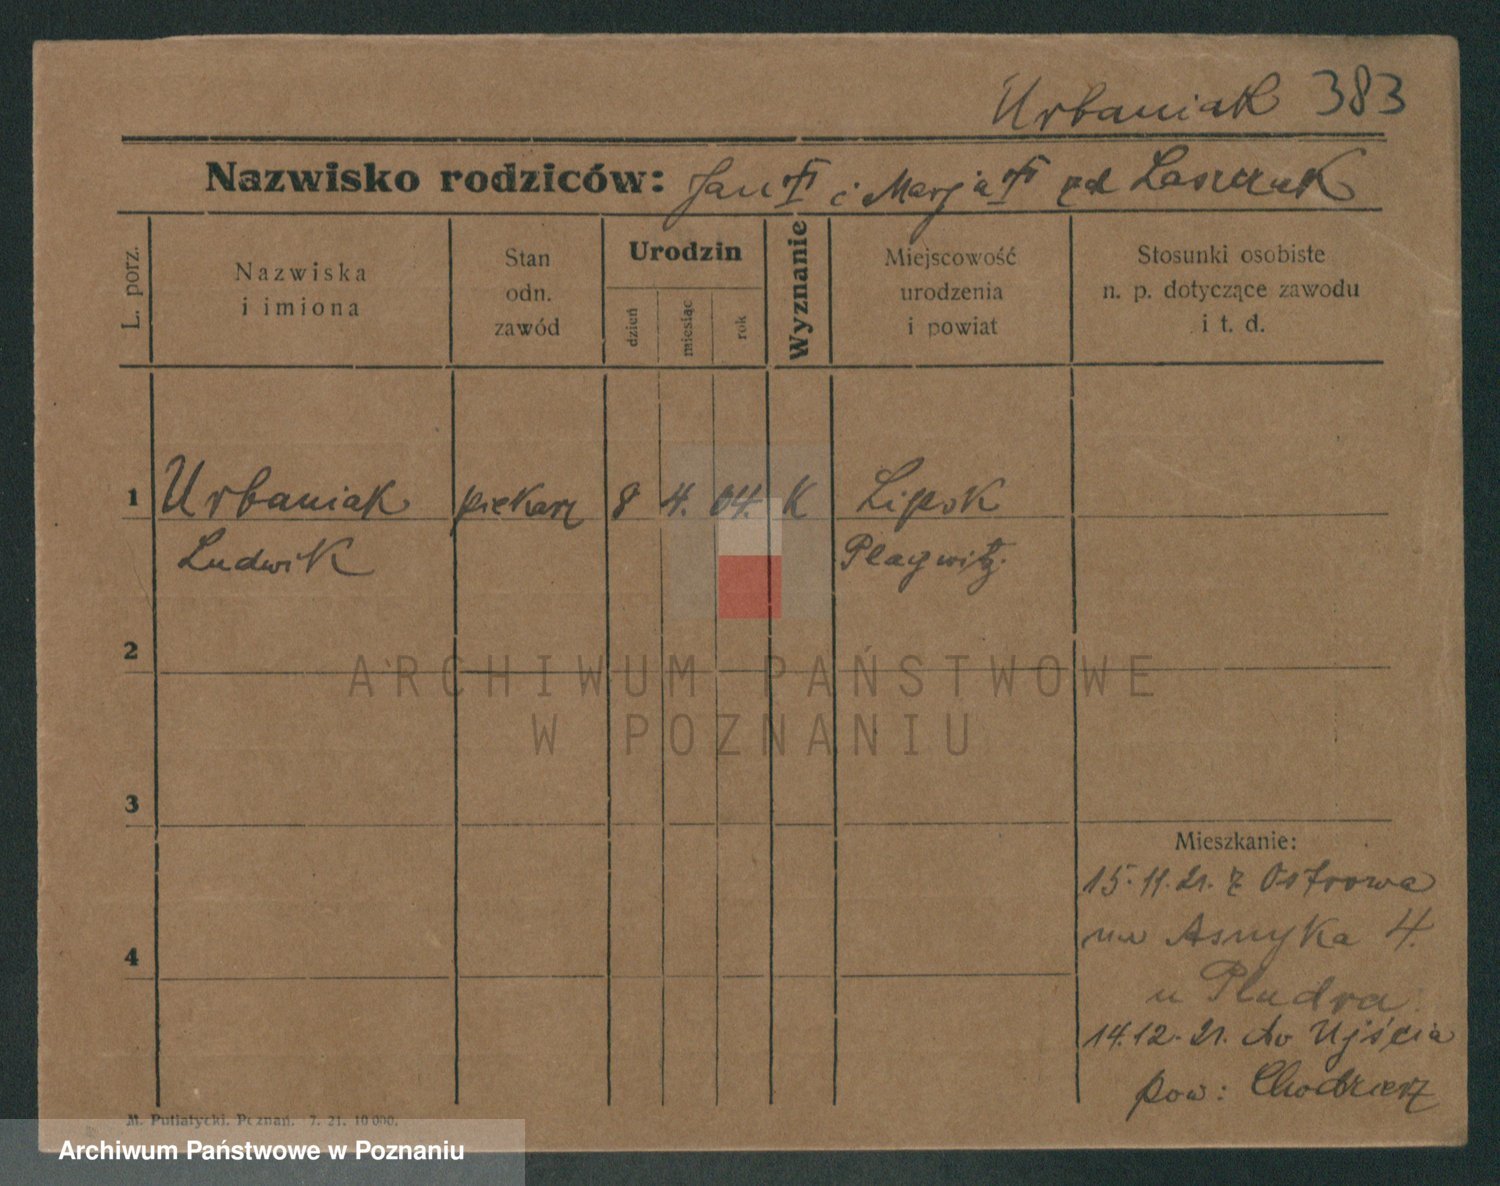 Urbaniak 383
Nazwisko rodziców: Jan i Marja zd Laszczak
L. porz.
Nazwiska
i imiona
Stan
odn.
zawód
Urodzin
dzień
miesiąc
rok
Wyznanie
Miejscowość
urodzenia
i powiat
Stosunki osobiste
n. p. dotyczące zawodu
i t. d.
1 Urbaniak piekarz 8 4. 04. K Lipsk
Ludwik Plagwitz
2
ARCHIWUM PAŃSTWOWE
W POZNANIU
3
Mieszkanie:
15.11.21. z Ostrowa
Asnyka 4.
4
u Pludra
14.12.21. do Ujścia
pow: Chodzież
M. Putiatycki. Poznań. 7. 21. 10000.
Archiwum Państwowe w Poznaniu